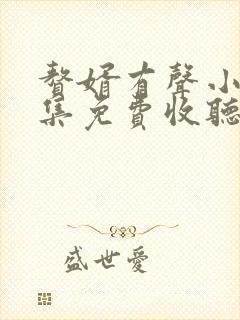 贅婿有聲小
集免費收聽
盛世愛